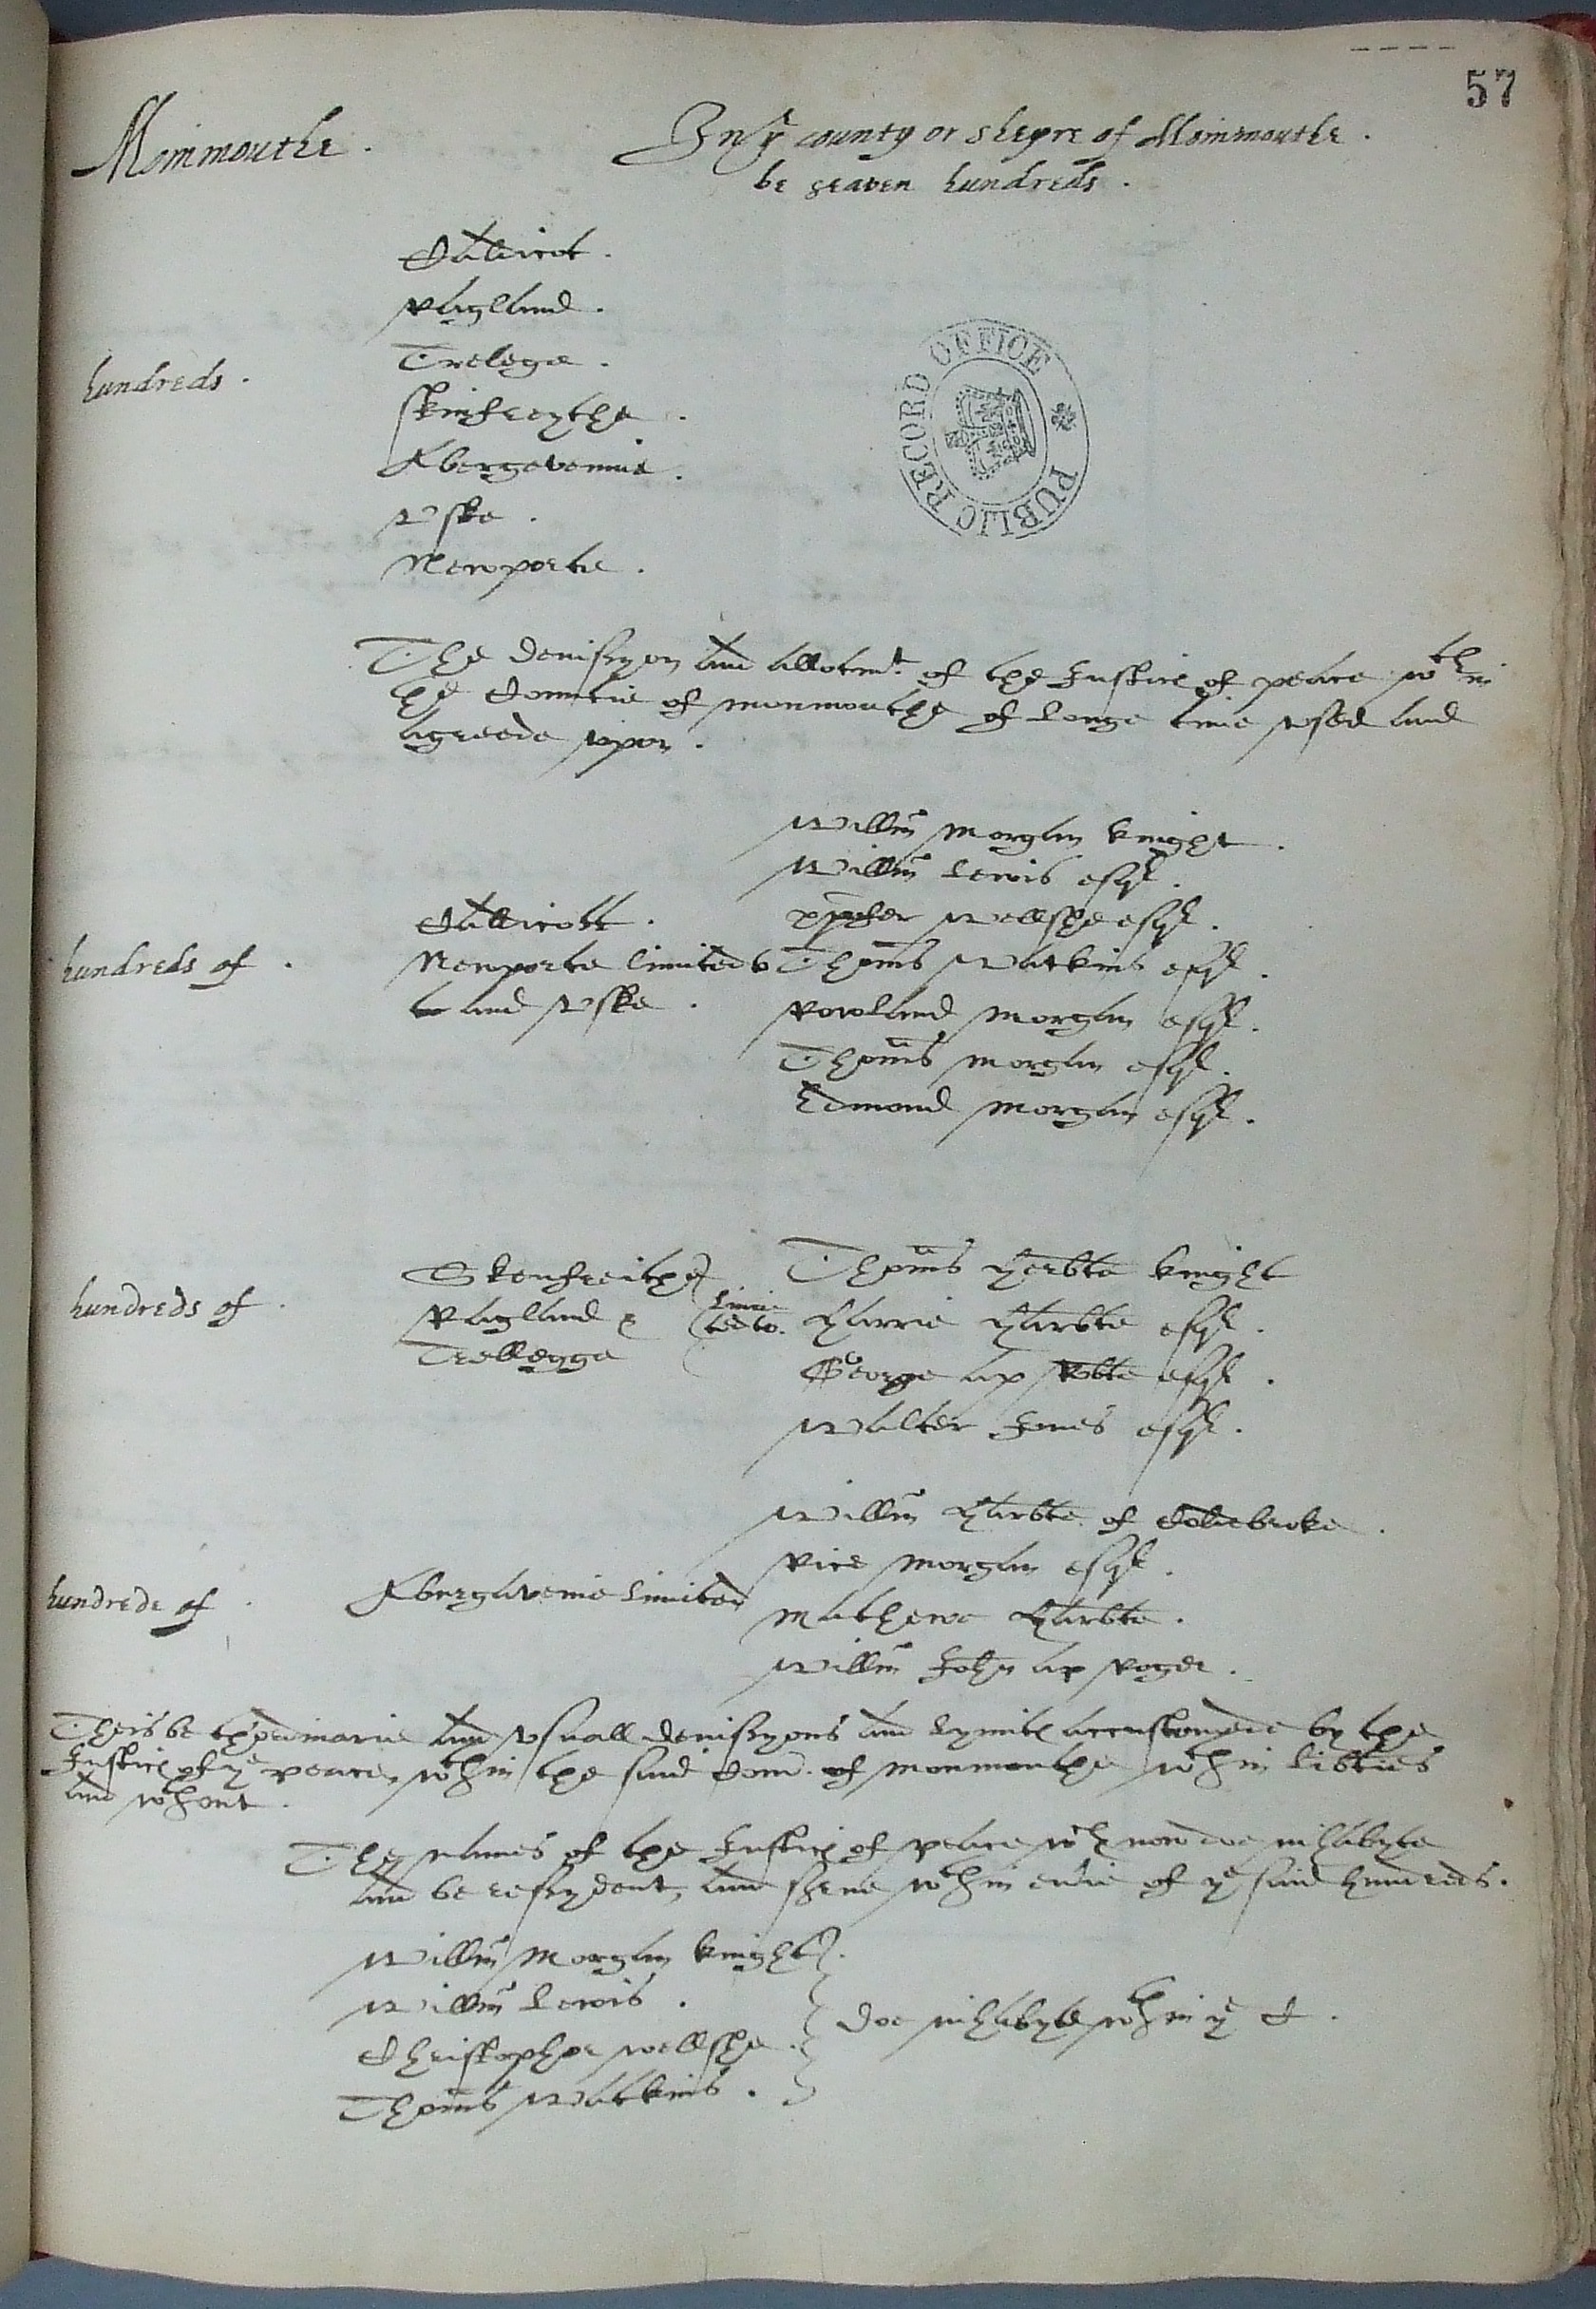 57
Mommouthe.
In yͤ county or sheyre of Mommouthe.
be seaven hundreds.
hundreds.
Caldicot.
Raglland.
Trelege.
Skinfreythe.
Abergavennie.
Vske.
Newporte.
PUBLIC RECORD OFFICE
The devisyon and allotmt. of the Justices of peace wthin
the Countie of monmouthe of longe time vsed and
agreede vpon.
hundreds of.
Calldicott.
Newporte limited to
and Vske.
Willm Morgan knight.
Willm Lewis esqr.
xpofer Wellshe esqr.
Thoms Watkins esqr.
Rowland Morgan esqr.
Thoms Morgan esqr.
Edmond Morgan esqr.
hundreds of.
Skenfreithe
Raglland &
Trellegge
Limited to.
Thoms Herbte knight
Harrie Harbte esqr.
George ap Robte esqr.
Walter Jones esqr.
hundrede of.
Abergavenie Limited
Willm Harbte of Colebroke.
Rice Morgan esqr.
Mathewe Harbte.
Willm John ap Roger.
Theis be thordinarie and vsuall devisyons and lymites accustomede by the
Justices of yͤ peace, wthin the said Com. of monmouthe wthin libties
and wthout.
The names of the Justices of peace wch now doe inhabyte
and be resydent, and serve wthin evrie of yͤ said hundreds.
Willm Morgan knight.
Willm Lewis.
Christopher Wellshe.
Thoms Watkins.
doe inhabyte wthin yͤ C.